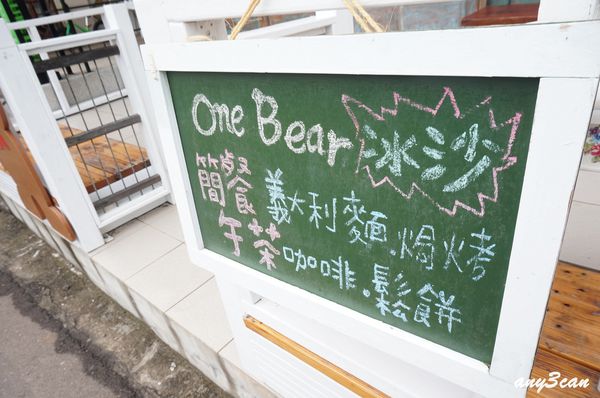 One Bear
冰沙
簡餐
午茶
義大利麵.焗烤
咖啡.鬆餅
any3can